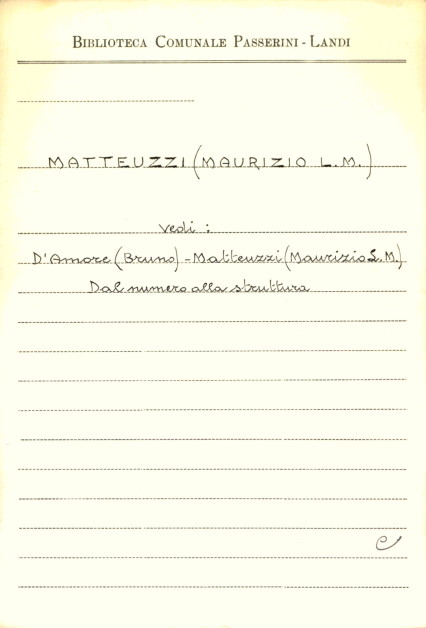 BIBLIOTECA COMUNALE PASSERINI - LANDI
MATTEUZZI (MAURIZIO L.M.)
Vedi :
D'Amore (Bruno) - Matteuzzi (Maurizio L. M.)
Dal numero alla struttura
e